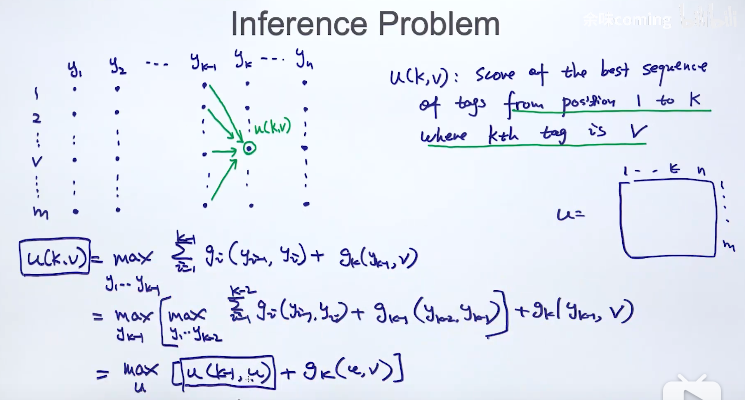 Inference Problem
y₁ y₂ ... yₖ₋₁ yₖ ... yₙ
1
2
⋮
v
⋮
m
u(k,v)
u(k,v): score of the best sequence
of tags from position 1 to K
where kth tag is V
1 - - k n
1
⋮
m
u=
u(k,v) = max_{y₁...yₖ₋₁} Σ_{i=1}^{k-1} gᵢ(yᵢ₋₁, yᵢ) + gₖ(yₖ₋₁, v)
= max_{yₖ₋₁} [max_{y₁...yₖ₋₂} Σ_{i=1}^{k-2} gᵢ(yᵢ₋₁, yᵢ) + gₖ₋₁(yₖ₋₂, yₖ₋₁)] + gₖ(yₖ₋₁, v)
= max_u [u(k-1, u) + gₖ(u, v)]